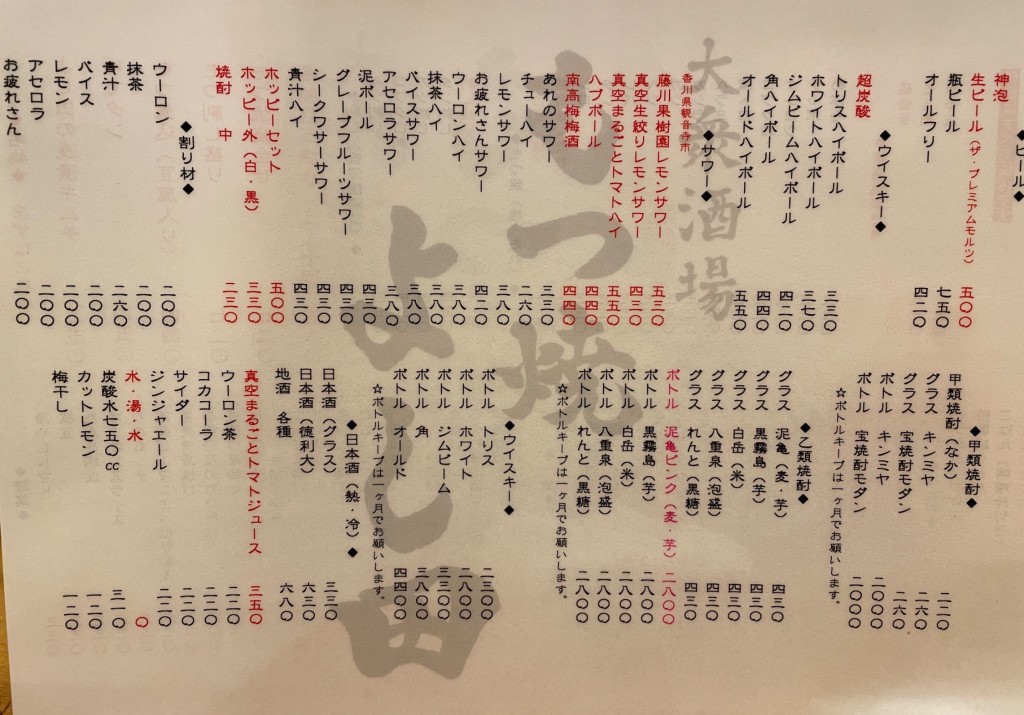 ◆ビール◆
神泡
生ビール（ザ・プレミアムモルツ） 五〇〇
瓶ビール 七五〇
オールフリー 四二〇
◆ウイスキー◆
超炭酸
トリスハイボール 三三〇
ホワイトハイボール 三七〇
ジムビームハイボール 四二〇
角ハイボール 四四〇
オールドハイボール 五五〇
◆サワー◆
香川県観音寺市
藤川果樹園レモンサワー 五三〇
真空生絞りレモンサワー 四三〇
真空まるごとトマトハイ 五五〇
ハブボール 四四〇
南高梅梅酒 四四〇
あれのサワー 三三〇
チューハイ 二六〇
レモンサワー 三八〇
お疲れさんサワー 四二〇
ウーロンハイ 三八〇
抹茶ハイ 三八〇
バイスサワー 三八〇
アセロラサワー 三八〇
泥ボール 四三〇
グレープフルーツサワー 四三〇
シークワーサーサワー 四三〇
青汁ハイ 四三〇
ホッピーセット 五〇〇
ホッピー外（白・黒） 三三〇
焼酎 中 二三〇
◆割り材◆
ウーロン 二〇〇
抹茶 二〇〇
青汁 二六〇
バイス 二〇〇
レモン 二〇〇
アセロラ 二〇〇
お疲れさん 二〇〇
◆甲類焼酎◆
甲類焼酎（なか） 二二〇
グラス キンミヤ 二六〇
グラス 宝焼酎モダン 二六〇
ボトル キンミヤ 二〇〇〇
ボトル 宝焼酎モダン 二〇〇〇
☆ボトルキープは一ヶ月でお願いします。
◆乙類焼酎◆
グラス 泥亀（麦・芋） 四三〇
グラス 黒霧島（芋） 四三〇
グラス 白岳（米） 四三〇
グラス 八重泉（泡盛） 四三〇
グラス れんと（黒糖） 四三〇
ボトル 泥亀ピンク（麦・芋） 二八〇〇
ボトル 黒霧島（芋） 二八〇〇
ボトル 白岳（米） 二八〇〇
ボトル 八重泉（泡盛） 二八〇〇
ボトル れんと（黒糖） 二八〇〇
☆ボトルキープは一ヶ月でお願いします。
◆ウイスキー◆
ボトル トリス 二三〇〇
ボトル ホワイト 二八〇〇
ボトル ジムビーム 三三〇〇
ボトル 角 三八〇〇
ボトル オールド 四四〇〇
☆ボトルキープは一ヶ月でお願いします。
◆日本酒（熱・冷）◆
日本酒（グラス） 三三〇
日本酒（徳利大） 六三〇
地酒 各種 六八〇
真空まるごとトマトジュース 三五〇
ウーロン茶 二二〇
コカコーラ 二二〇
サイダー 二二〇
ジンジャエール 二二〇
水・湯・氷 〇
炭酸水七五〇cc 三一〇
カットレモン 一二〇
梅干し 一二〇
大衆酒場
もつ焼
よし田